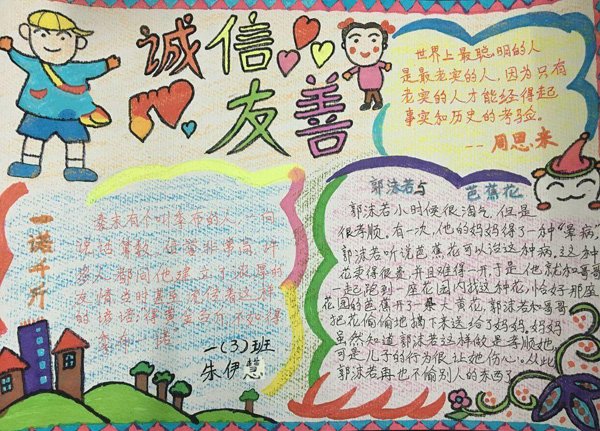 诚信
友善
世界上最聪明的人
是最老实的人,因为只有
老实的人才能经得起
事实和历史的考验。
--周恩来
一诺千斤
秦末有个叫季布的人,一向
说话算数,信誉非常高,许
多人都同他建立了浓厚的
友情。当时甚至流传着这样
的谚语:"得黄金百斤,不如得
季布一诺"
一(3)班
朱伊慧
郭沫若与 芭蕉花
郭沫若小时候很淘气,但是
很孝顺。有一次,他的妈妈得了一种"晕病"
郭沫若听说芭蕉花可以治这种病。这种
花卖得很贵,并且难得一开,于是,他就和哥哥
一起跑到一座花园内找这种花,恰好那座
花园的芭蕉开了一朵大黄花,郭沫若和哥哥
把花偷偷地摘下来送给了妈妈,妈妈
虽然知道郭沫若这样做是孝顺她,
可是儿子的行为很让她伤心。从此
郭沫若再也不偷别人的东西了